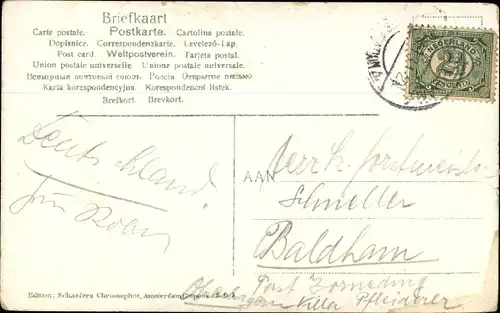 Briefkaart
Carte postale. Postkarte. Cartolina postale.
Dopisnice. Correspondenzkarte. Levelező-Lap.
Post card. Weltpostverein. Tarjeta postal.
Union postale universelle. Unione postale universale.
Всемірный почтовый союзъ. Россія. Открытое письмо
Karta korespondencyjna. Korespondenční lístek.
Brefkort. Brevkort.
NEDERLAND
2½
CENT
Deutschland.
AAN
Herr k. Forstmeister
Schneller
Baldham
Post Zorneding
Villa Pfleiderer
Edition: Schaefers Chromophot, Amsterdam